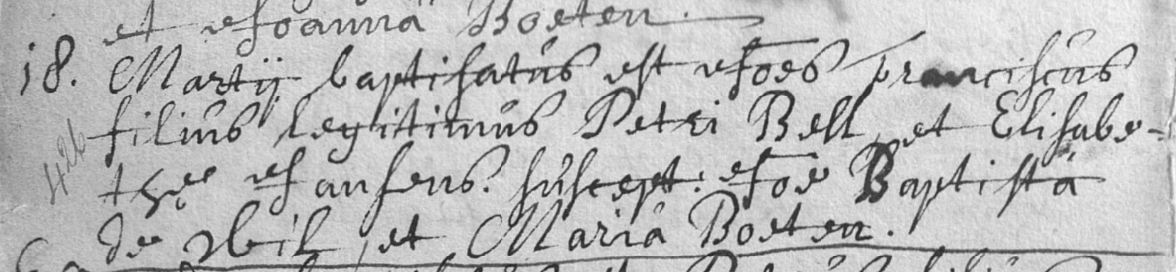 et Joanna Boeten.
18. Martij baptisatus est Joes franciscus
filius legitimus Petri Bell, et Elisabe-
thæ Jansens. suscept: Joe Baptista
de Weil, et Maria Boeten.